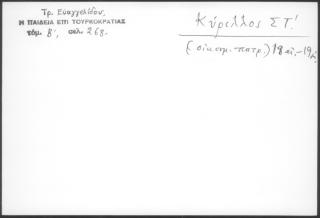 Τρ. Ευαγγελίδου,
Η ΠΑΙΔΕΙΑ ΕΠΙ ΤΟΥΡΚΟΚΡΑΤΙΑΣ
τόμ. Β', σελ. 268.
Κύριλλος ΣΤ'.
(οικουμ.-πατρ.) 18 αἰ.-19 αἰ.